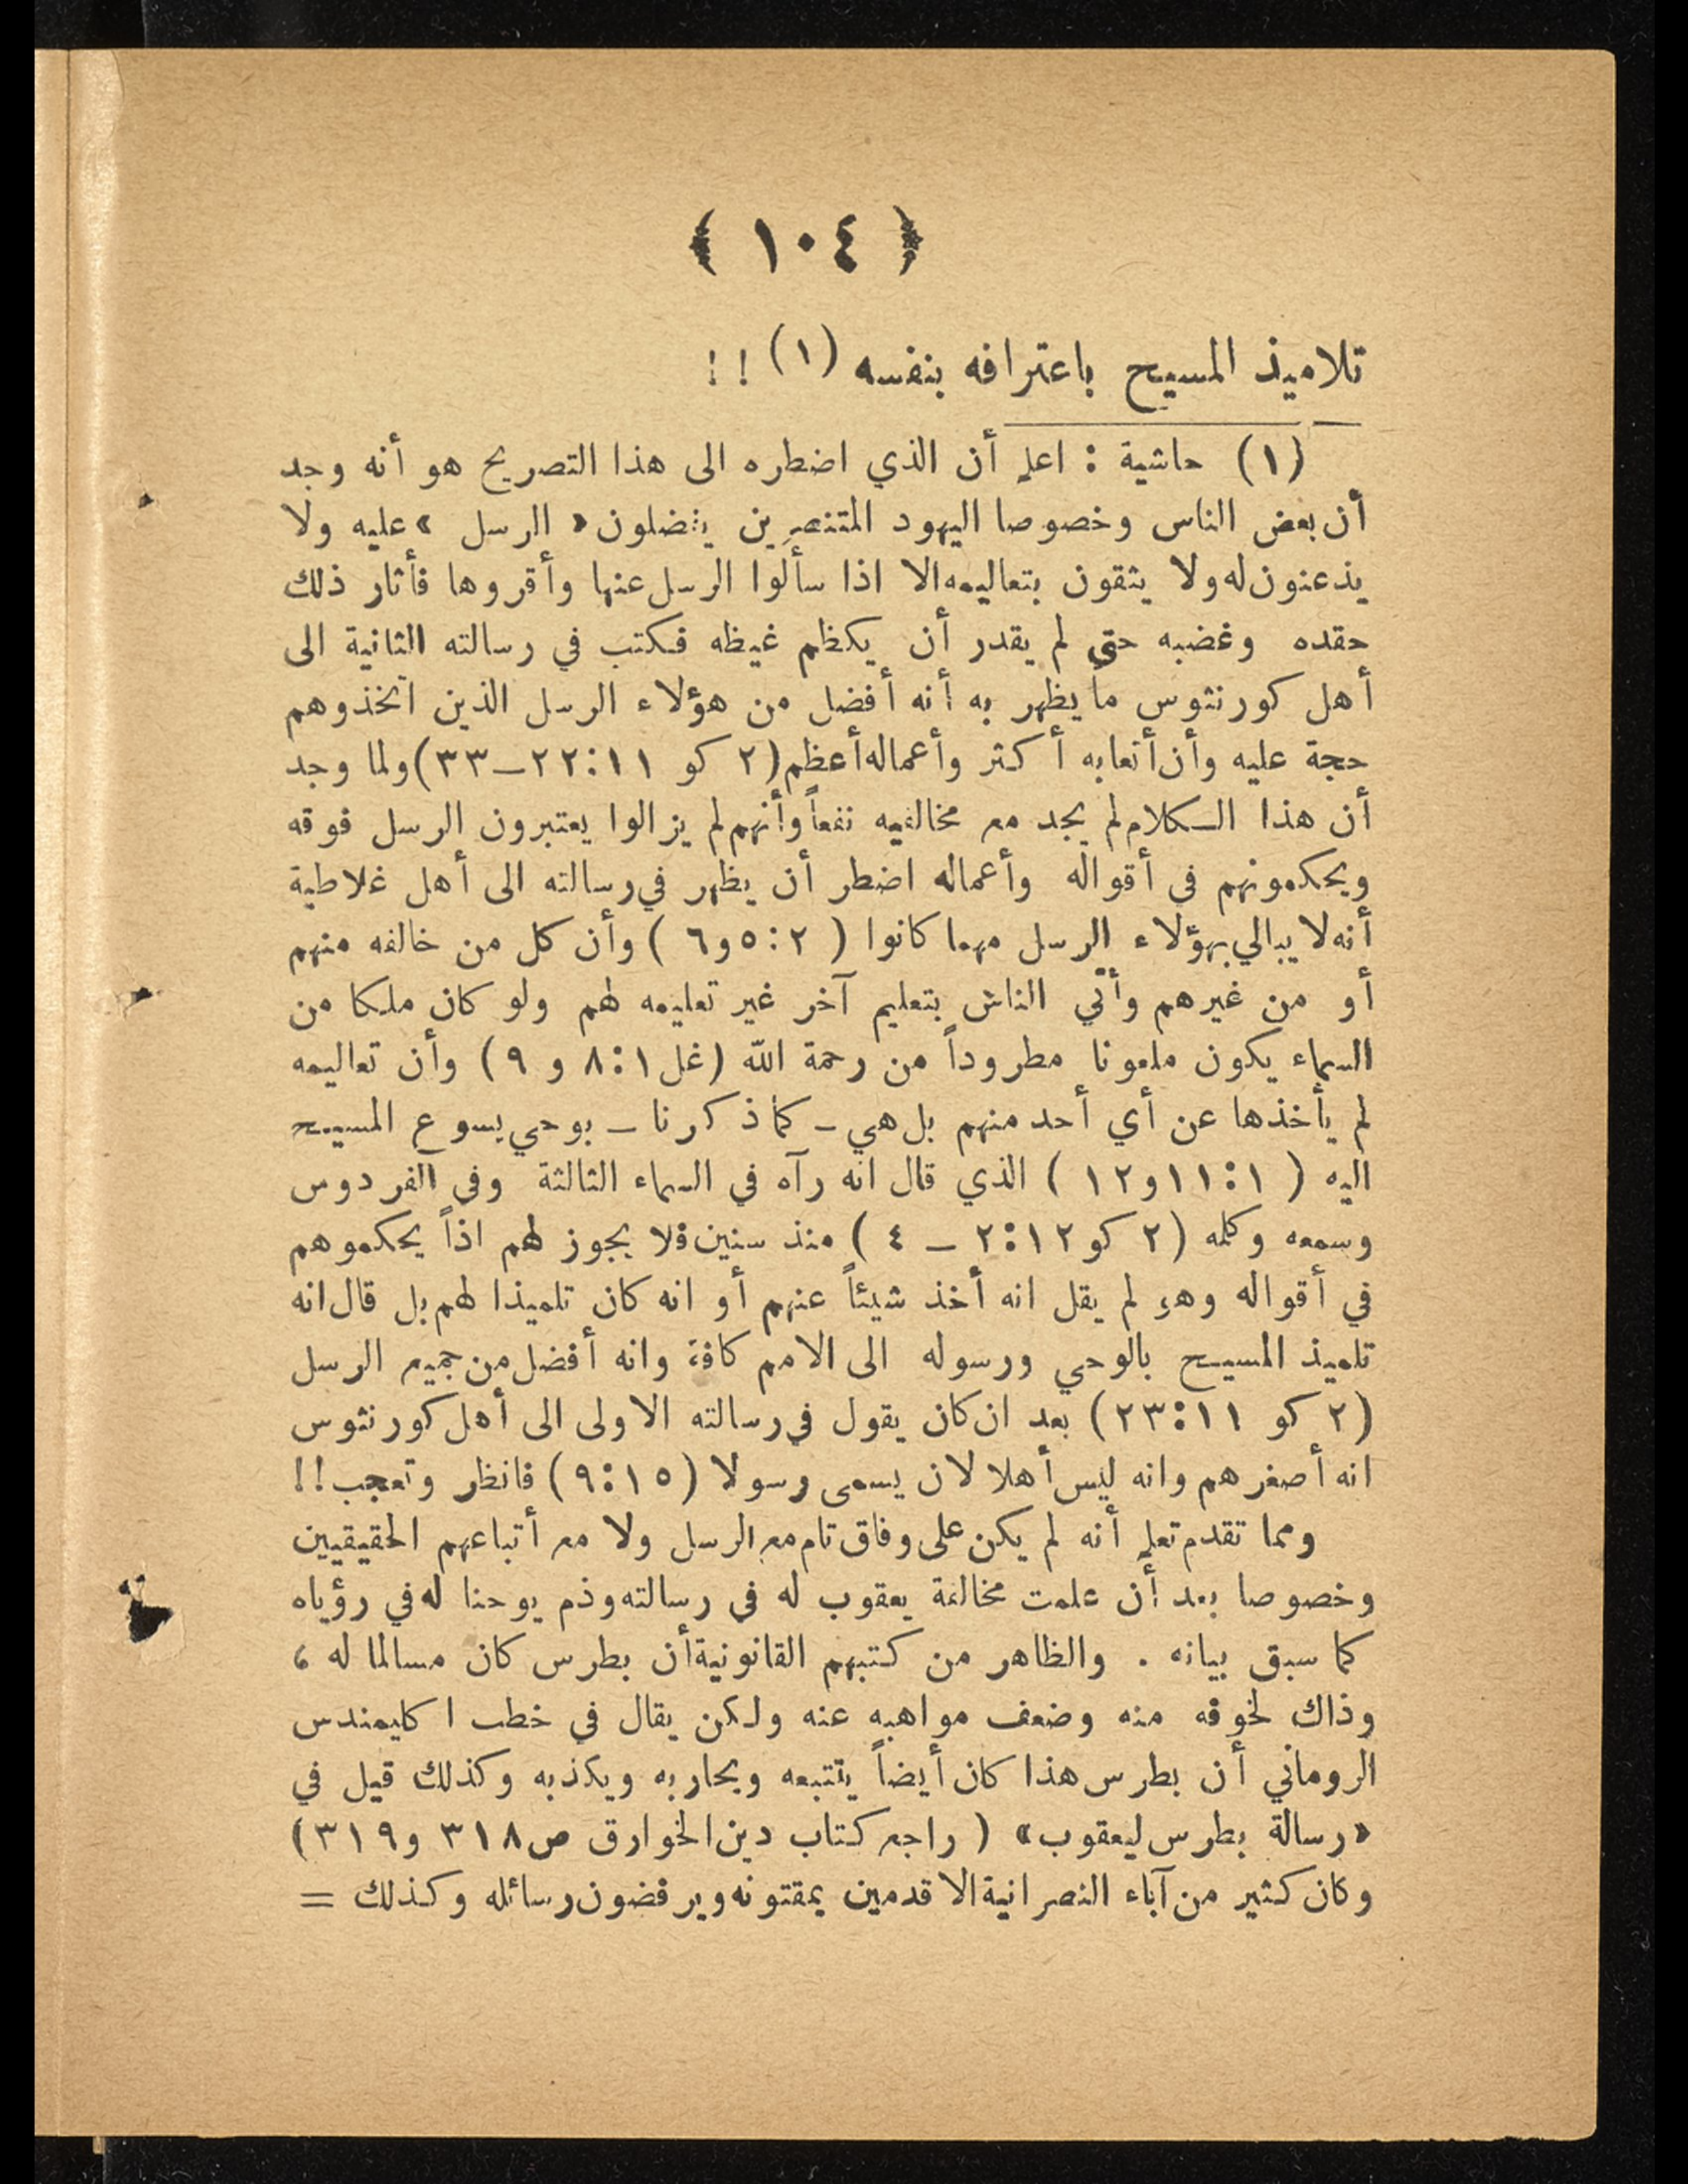 ﴿ ١٠٤ ﴾
تلاميذ المسيح باعترافه بنفسه (١) !!
(١) حاشية : اعلم أن الذي اضطره الى هذا التصريح هو أنه وجد
أن بعض الناس وخصوصا اليهود المتنصرين يفضلون « الرسل » عليه ولا
يذعنون له ولا يثقون بتعاليمه الا اذا سألوا الرسل عنها وأقروها فأثار ذلك
حقده وغضبه حتى لم يقدر أن يكظم غيظه فكتب في رسالته الثانية الى
أهل كورنثوس ما يظهر به أنه أفضل من هؤلاء الرسل الذين اتخذوهم
حجة عليه وأن أتعابه أكثر وأعماله أعظم (٢ كو ١١:٢٢ـ٣٣) ولما وجد
أن هذا الكلام لم يجد مع مخالفيه نفعاً وأنهم لم يزالوا يعتبرون الرسل فوقه
ويحكمونهم في أقواله وأعماله اضطر أن يظهر في رسالته الى أهل غلاطية
أنه لا يبالي بهؤلاء الرسل مهما كانوا ( ٢:٥و٦ ) وأن كل من خالفه منهم
أو من غيرهم وأتى الناس بتعليم آخر غير تعليمه لهم ولو كان ملكا من
السماء يكون ملعونا مطروداً من رحمة الله (غل ١:٨ و ٩) وأن تعاليمه
لم يأخذها عن أي أحد منهم بل هي ـ كما ذكرنا ـ بوحي يسوع المسيح
اليه ( ١:١١و١٢ ) الذي قال انه رآه في السماء الثالثة وفي الفردوس
وسمعه وكلمه (٢ كو ١٢:٢ ـ ٤ ) منذ سنين فلا يجوز لهم اذاً يحكموهم
في أقواله وهو لم يقل انه أخذ شيئاً عنهم أو انه كان تلميذا لهم بل قال انه
تلميذ المسيح بالوحي ورسوله الى الامم كافة وانه أفضل من جميع الرسل
(٢ كو ١١:٢٣) بعد ان كان يقول في رسالته الاولى الى أهل كورنثوس
انه أصغرهم وانه ليس أهلا لان يسمى رسولا (١٥:٩) فانظر وتعجب !!
ومما تقدم تعلم أنه لم يكن على وفاق تام مع الرسل ولا مع أتباعهم الحقيقيين
وخصوصا بعد أن علمت مخالفة يعقوب له في رسالته وذم يوحنا له في رؤياه
كما سبق بيانه . والظاهر من كتبهم القانونية أن بطرس كان مسالما له ،
وذاك لخوفه منه وضعف مواهبه عنه ولكن يقال في خطب اكليمندس
الروماني أن بطرس هذا كان أيضاً يتتبعه ويحاربه ويكذبه وكذلك قيل في
«رسالة بطرس ليعقوب» ( راجع كتاب دين الخوارق ص ٣١٨ و٣١٩)
وكان كثير من آباء النصرانية الاقدمين يمقتونه ويرفضون رسائله وكذلك =